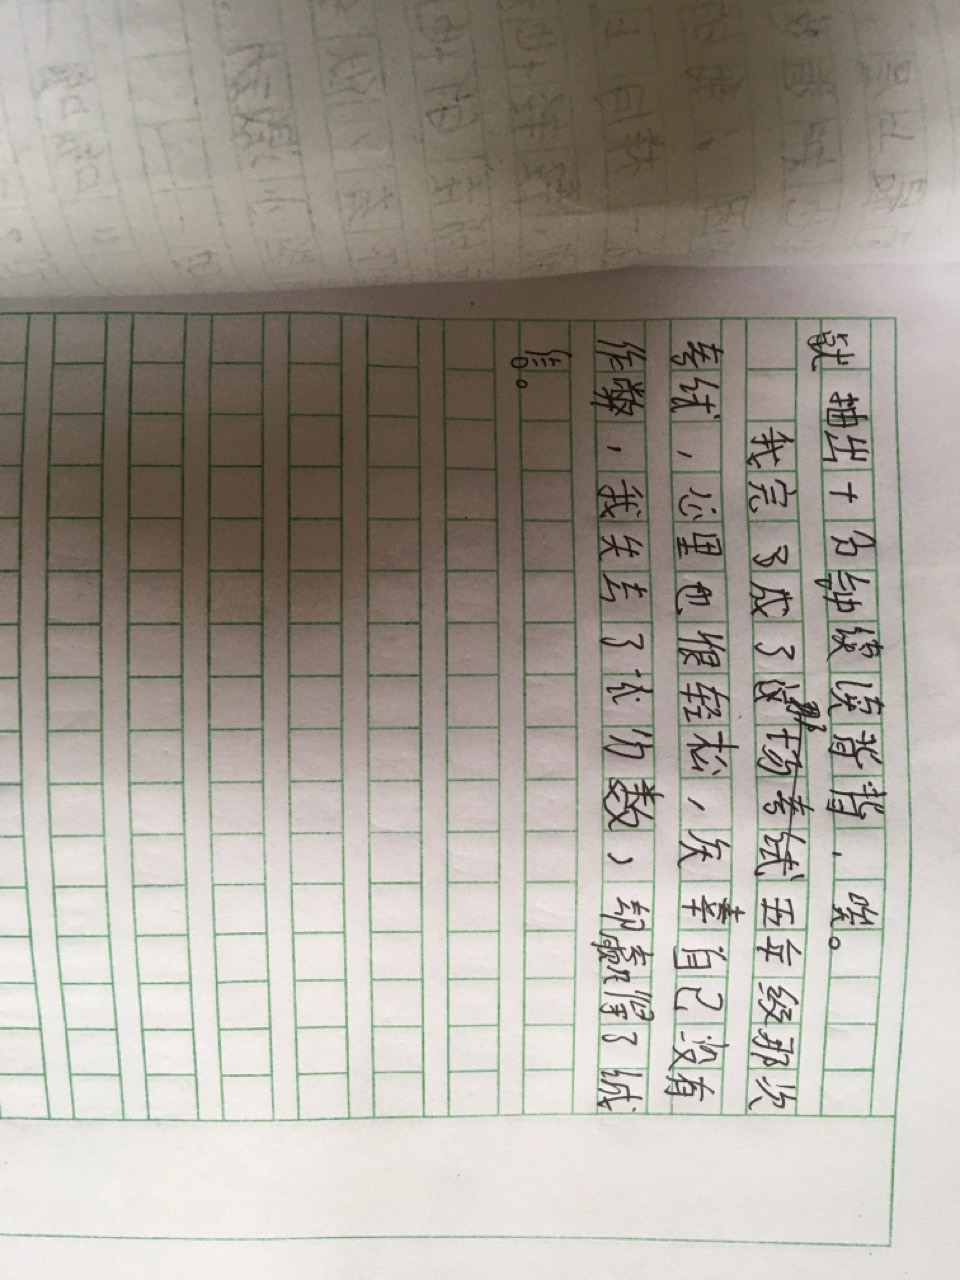 就抽出十分钟读读背背，唉。
我完了成了没那场考试五年级那次
考试，心里也很轻松，庆幸自己没有
作弊，我失去了 分数，却赢得了诚
信。